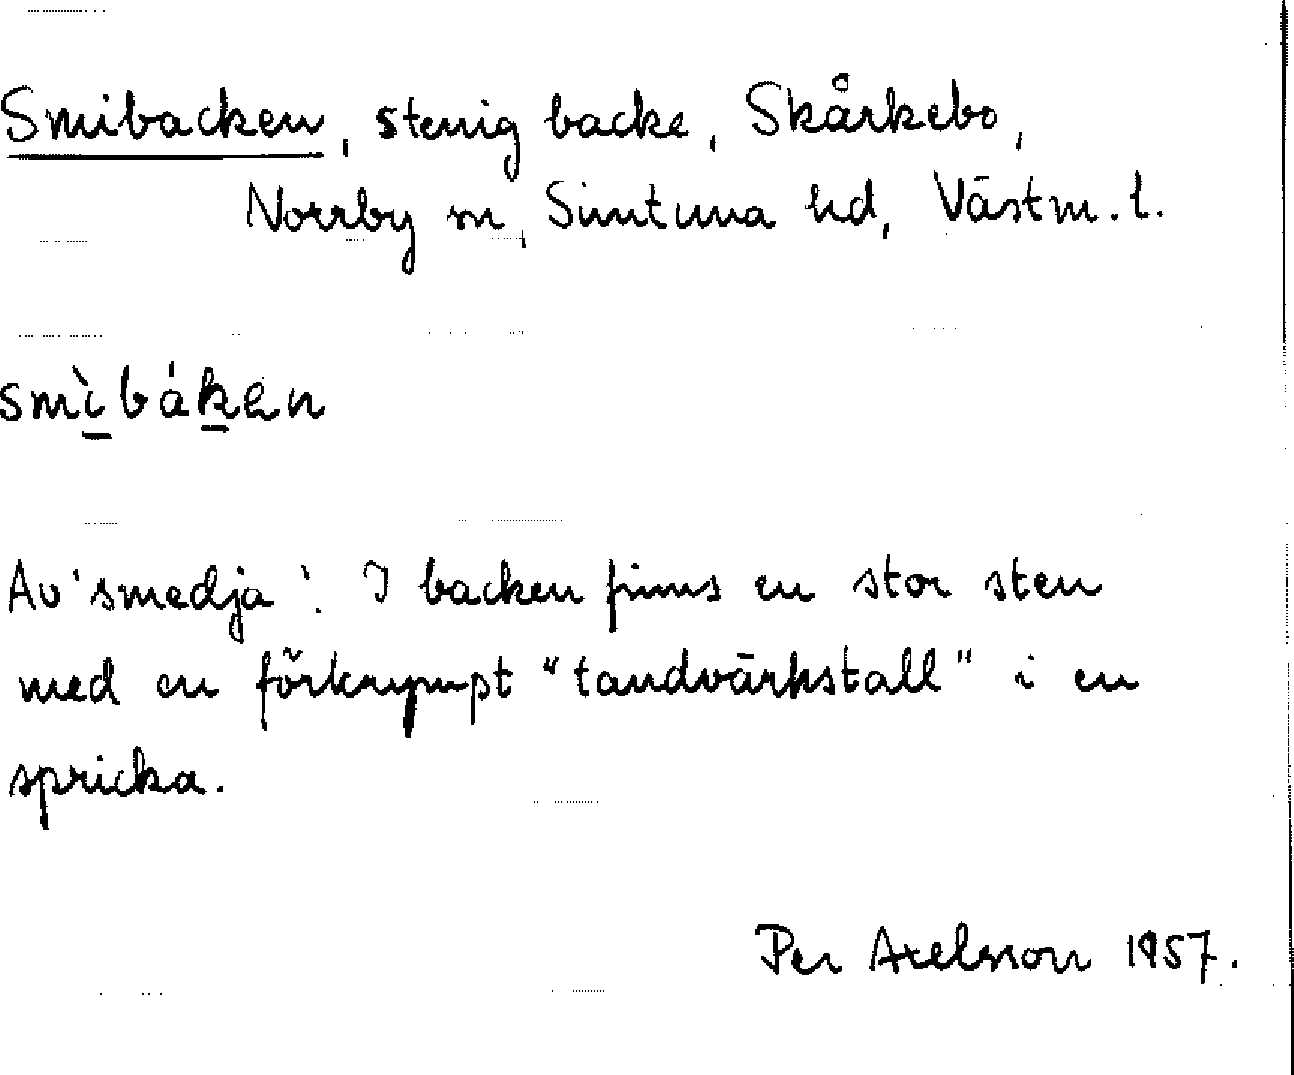 Smibacken, stenig backe, Skårkebo,
Norrby sn, Simtuna hd, Västm. l.
smìbákən
Av 'smedja'. I backen finns en stor sten
med en förkrympt "tandvärkstall" i en
spricka.
Per Axelsson 1957.